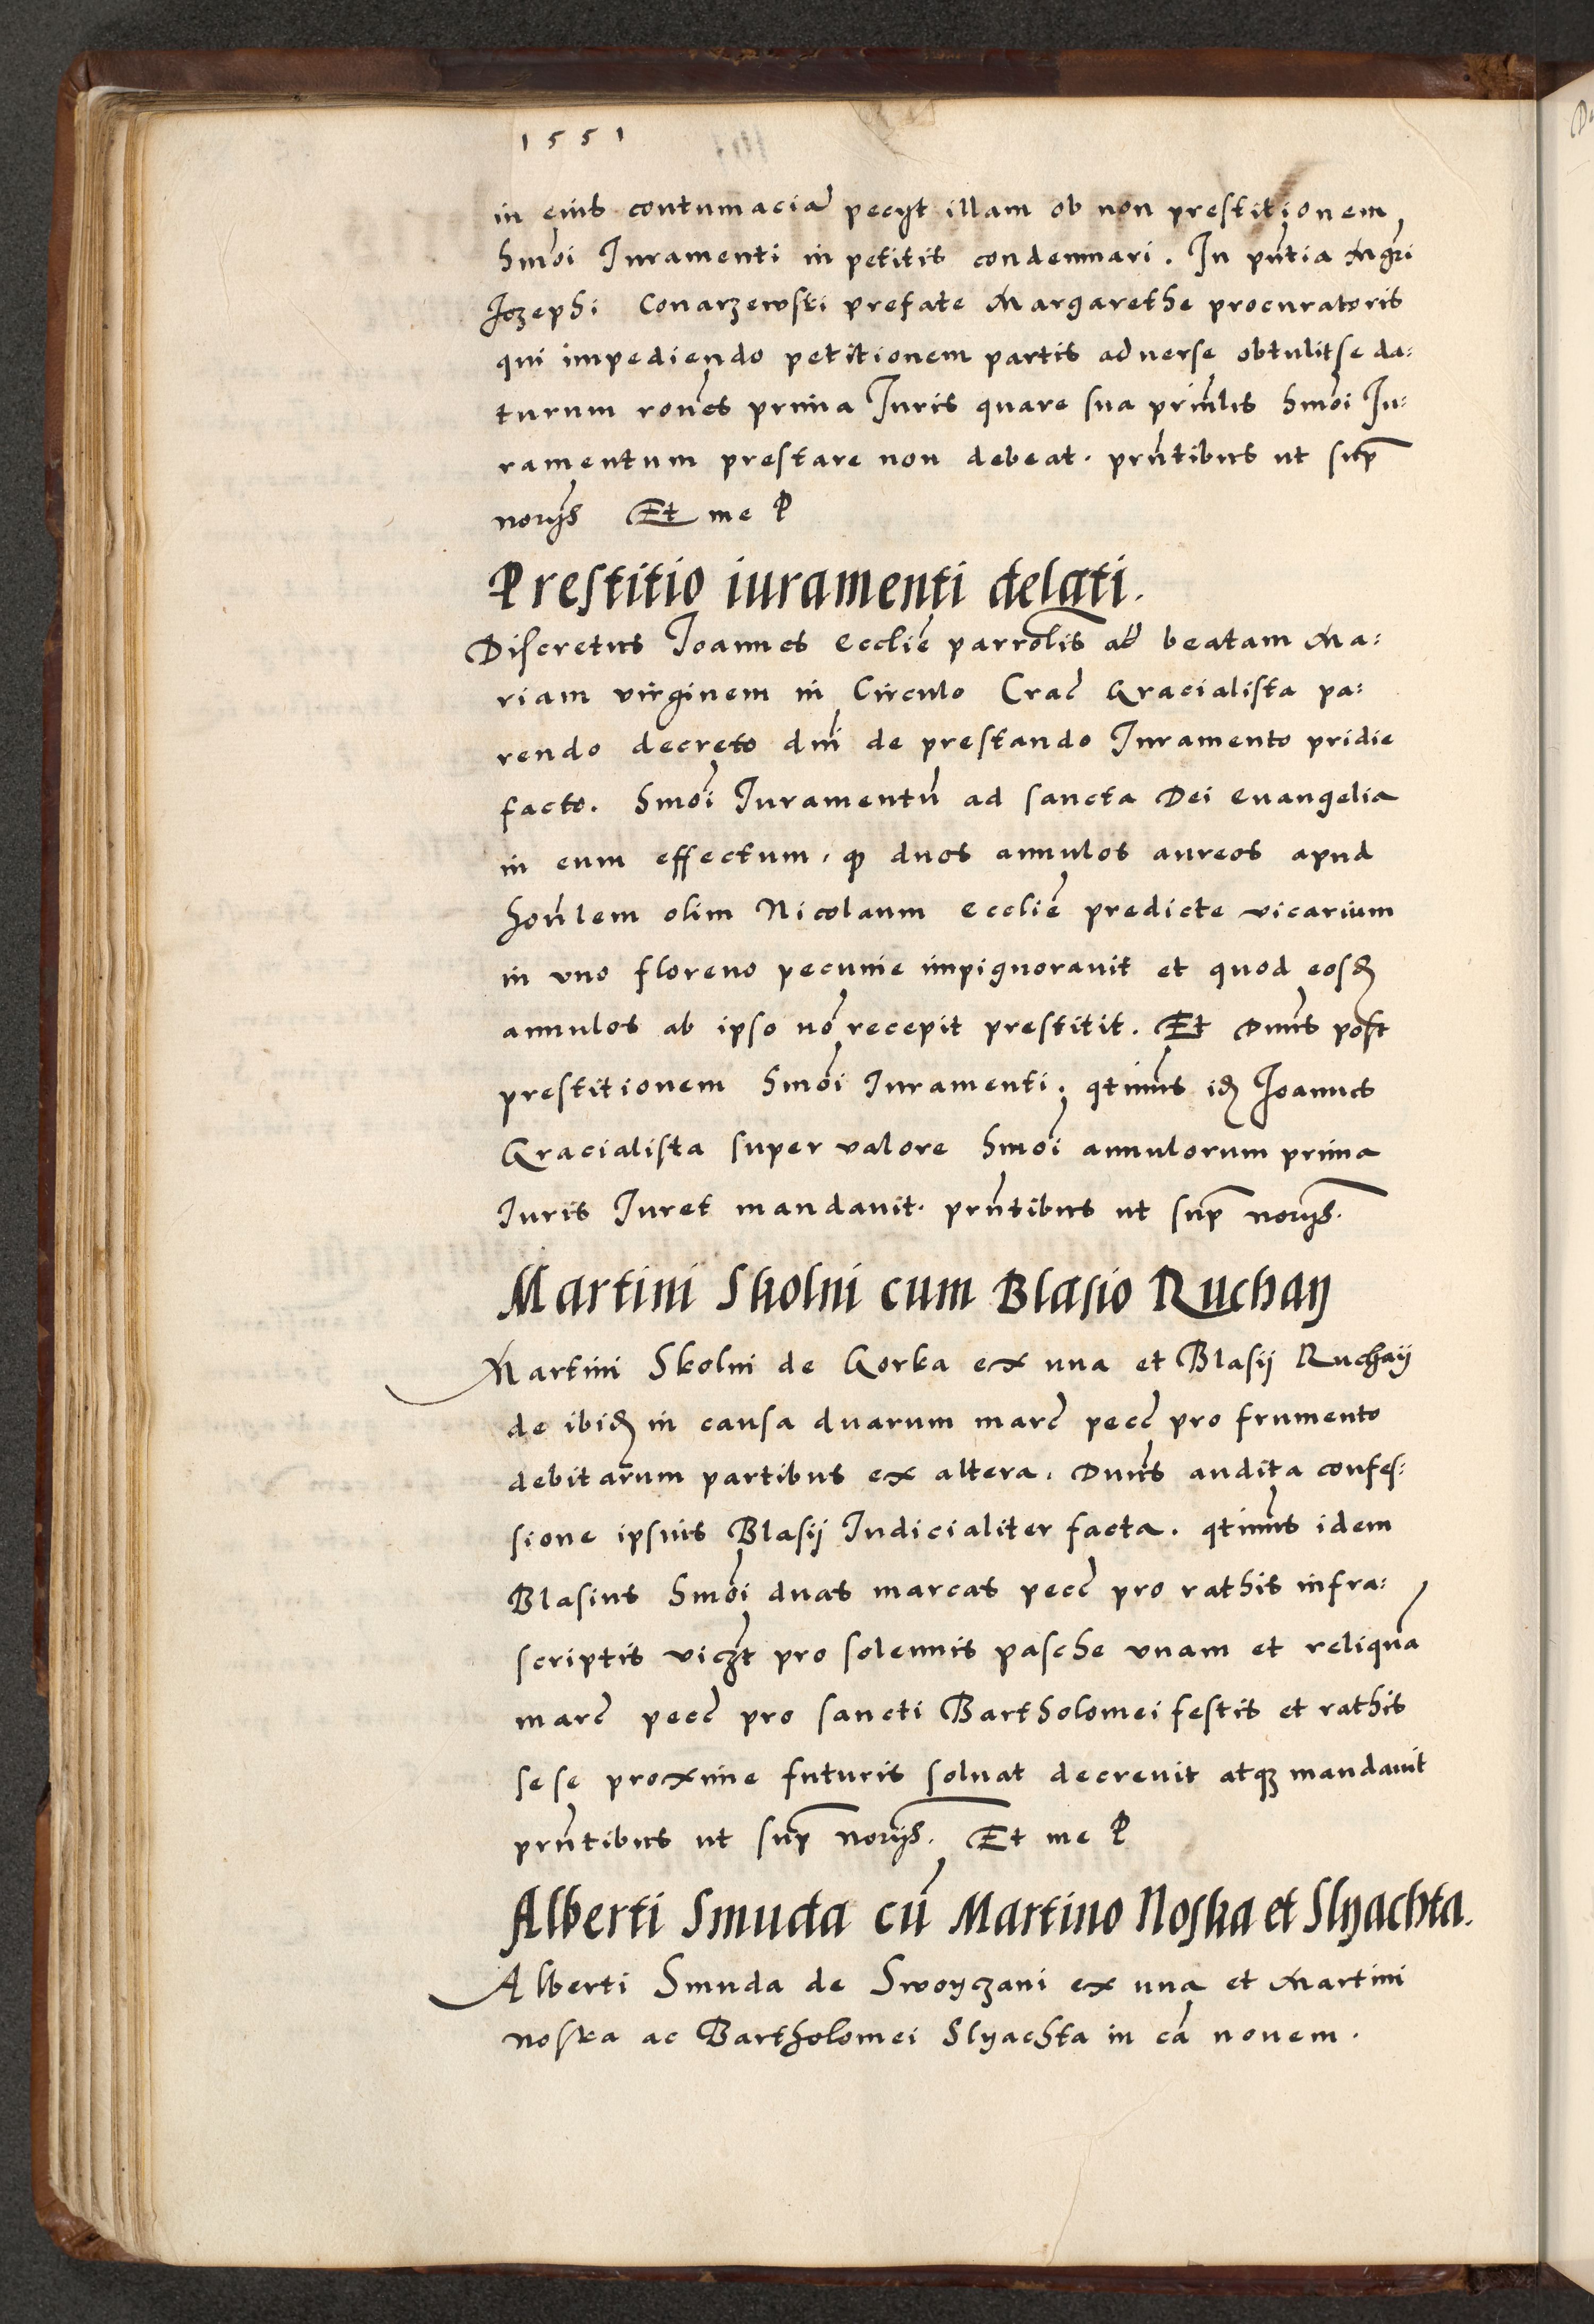 1551
in eius contumaciã pecijt illam ob non prestitionem
hmõi Iuramenti in petitis condemnari. In pñtia Mgri
Iozephi Conarzewski prefate Margarethe procuratoris
qui impediendo petitionem partis aduerse obtulit se da:
turum rones prima Iuris quare sua prinlis hmõi Iu:
ramentum prestare non debeat. prñtibus ut sup
norijs Et me P
Prestitio iuramenti delati.
Discretus Ioannes ecclie parrolis ad beatam Ma:
riam virginem in Circulo Crac Gracialista pa:
rendo decreto dni de prestando Iuramento pridie
facto. hmõi Iuramentũ ad sancta Dei euangelia
in eum effectum, qp duos annulos aureos apud
honlem olim Nicolaum ecclie predicte vicarium
in vno floreno pecunie impignorauit et quod eosd
annulos ab ipso nõ recepit prestitit. Et Dnus post
prestitionem hmõi Iuramenti, qtinus id Ioannes
Gracialista super valore hmõi annulorum prima
Iuris Iuret mandauit. prñtibus ut sup norijs.
Martini Skolni cum Blasio Ruchay
Martini Skolni de Gorka ex una et Blasij Ruchaij
de ibid in causa duarum marc pecc pro frumento
debitarum partibus ex altera. Dnus audita confes:
sione ipsius Blasij Iudicialiter facta. qtinus idem
Blasius hmõi duas marcas pecc pro rathis infra:
scriptis viczt pro solennis pasche vnam et reliquã
marc pecc pro sancti Bartholomei festis et rathis
sese proxime futuris soluat decreuit atqz mandauit
prñtibus ut sup norijs. Et me P
Alberti Smuda cũ Martino Noska et Slyachta.
Alberti Smuda de Swoyczani ex una et Martini
noska ac Bartholomei Slyachta in cã nouem.